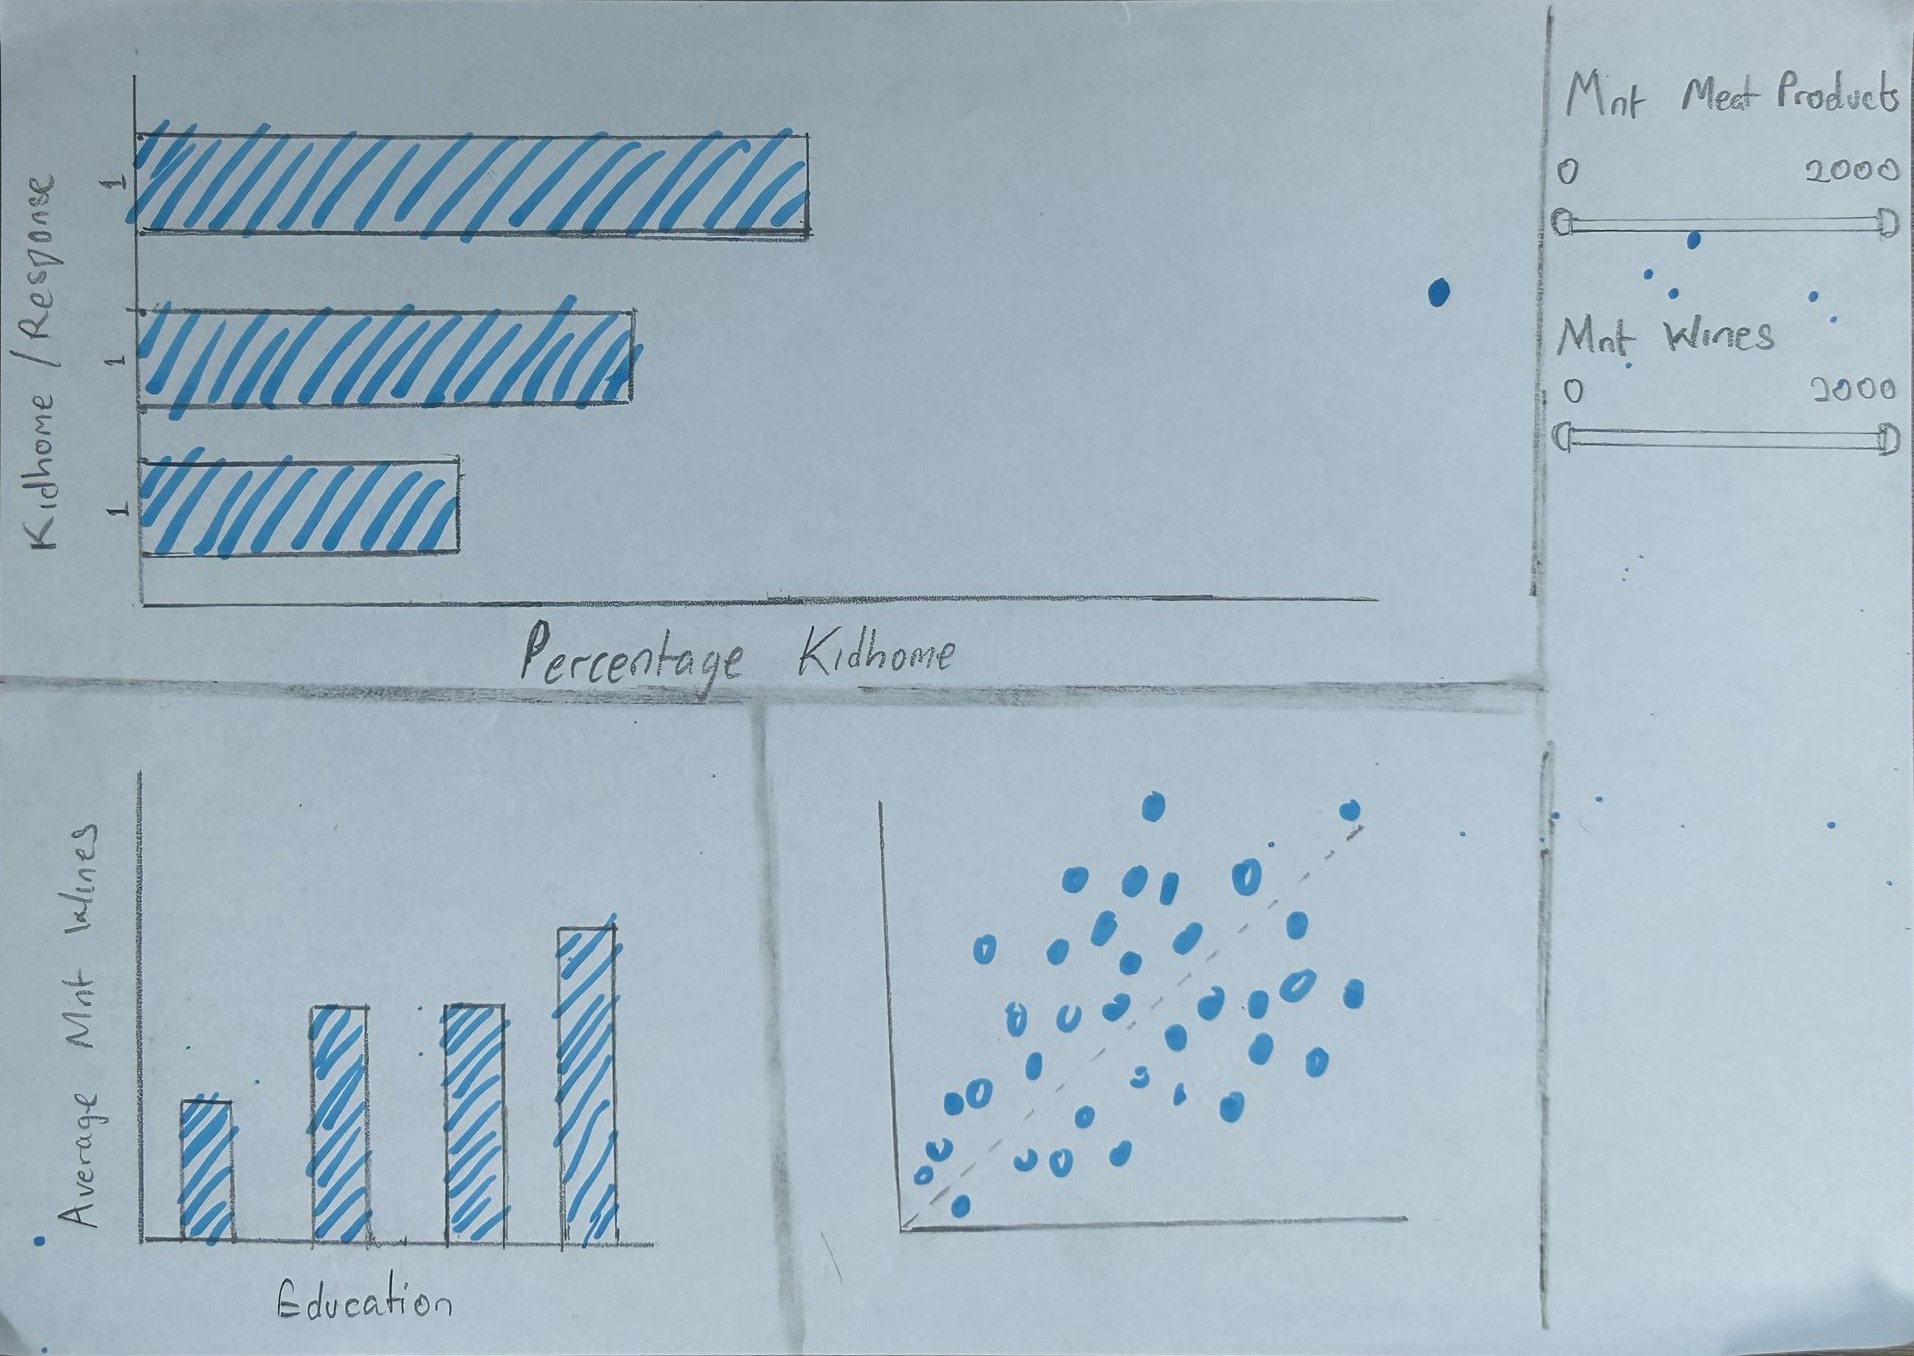 Kidhome / Response
1
1
1
Percentage Kidhome
Mnt Meat Products
0 2000
Mnt Wines
0 2000
Average Mnt Wines
Education